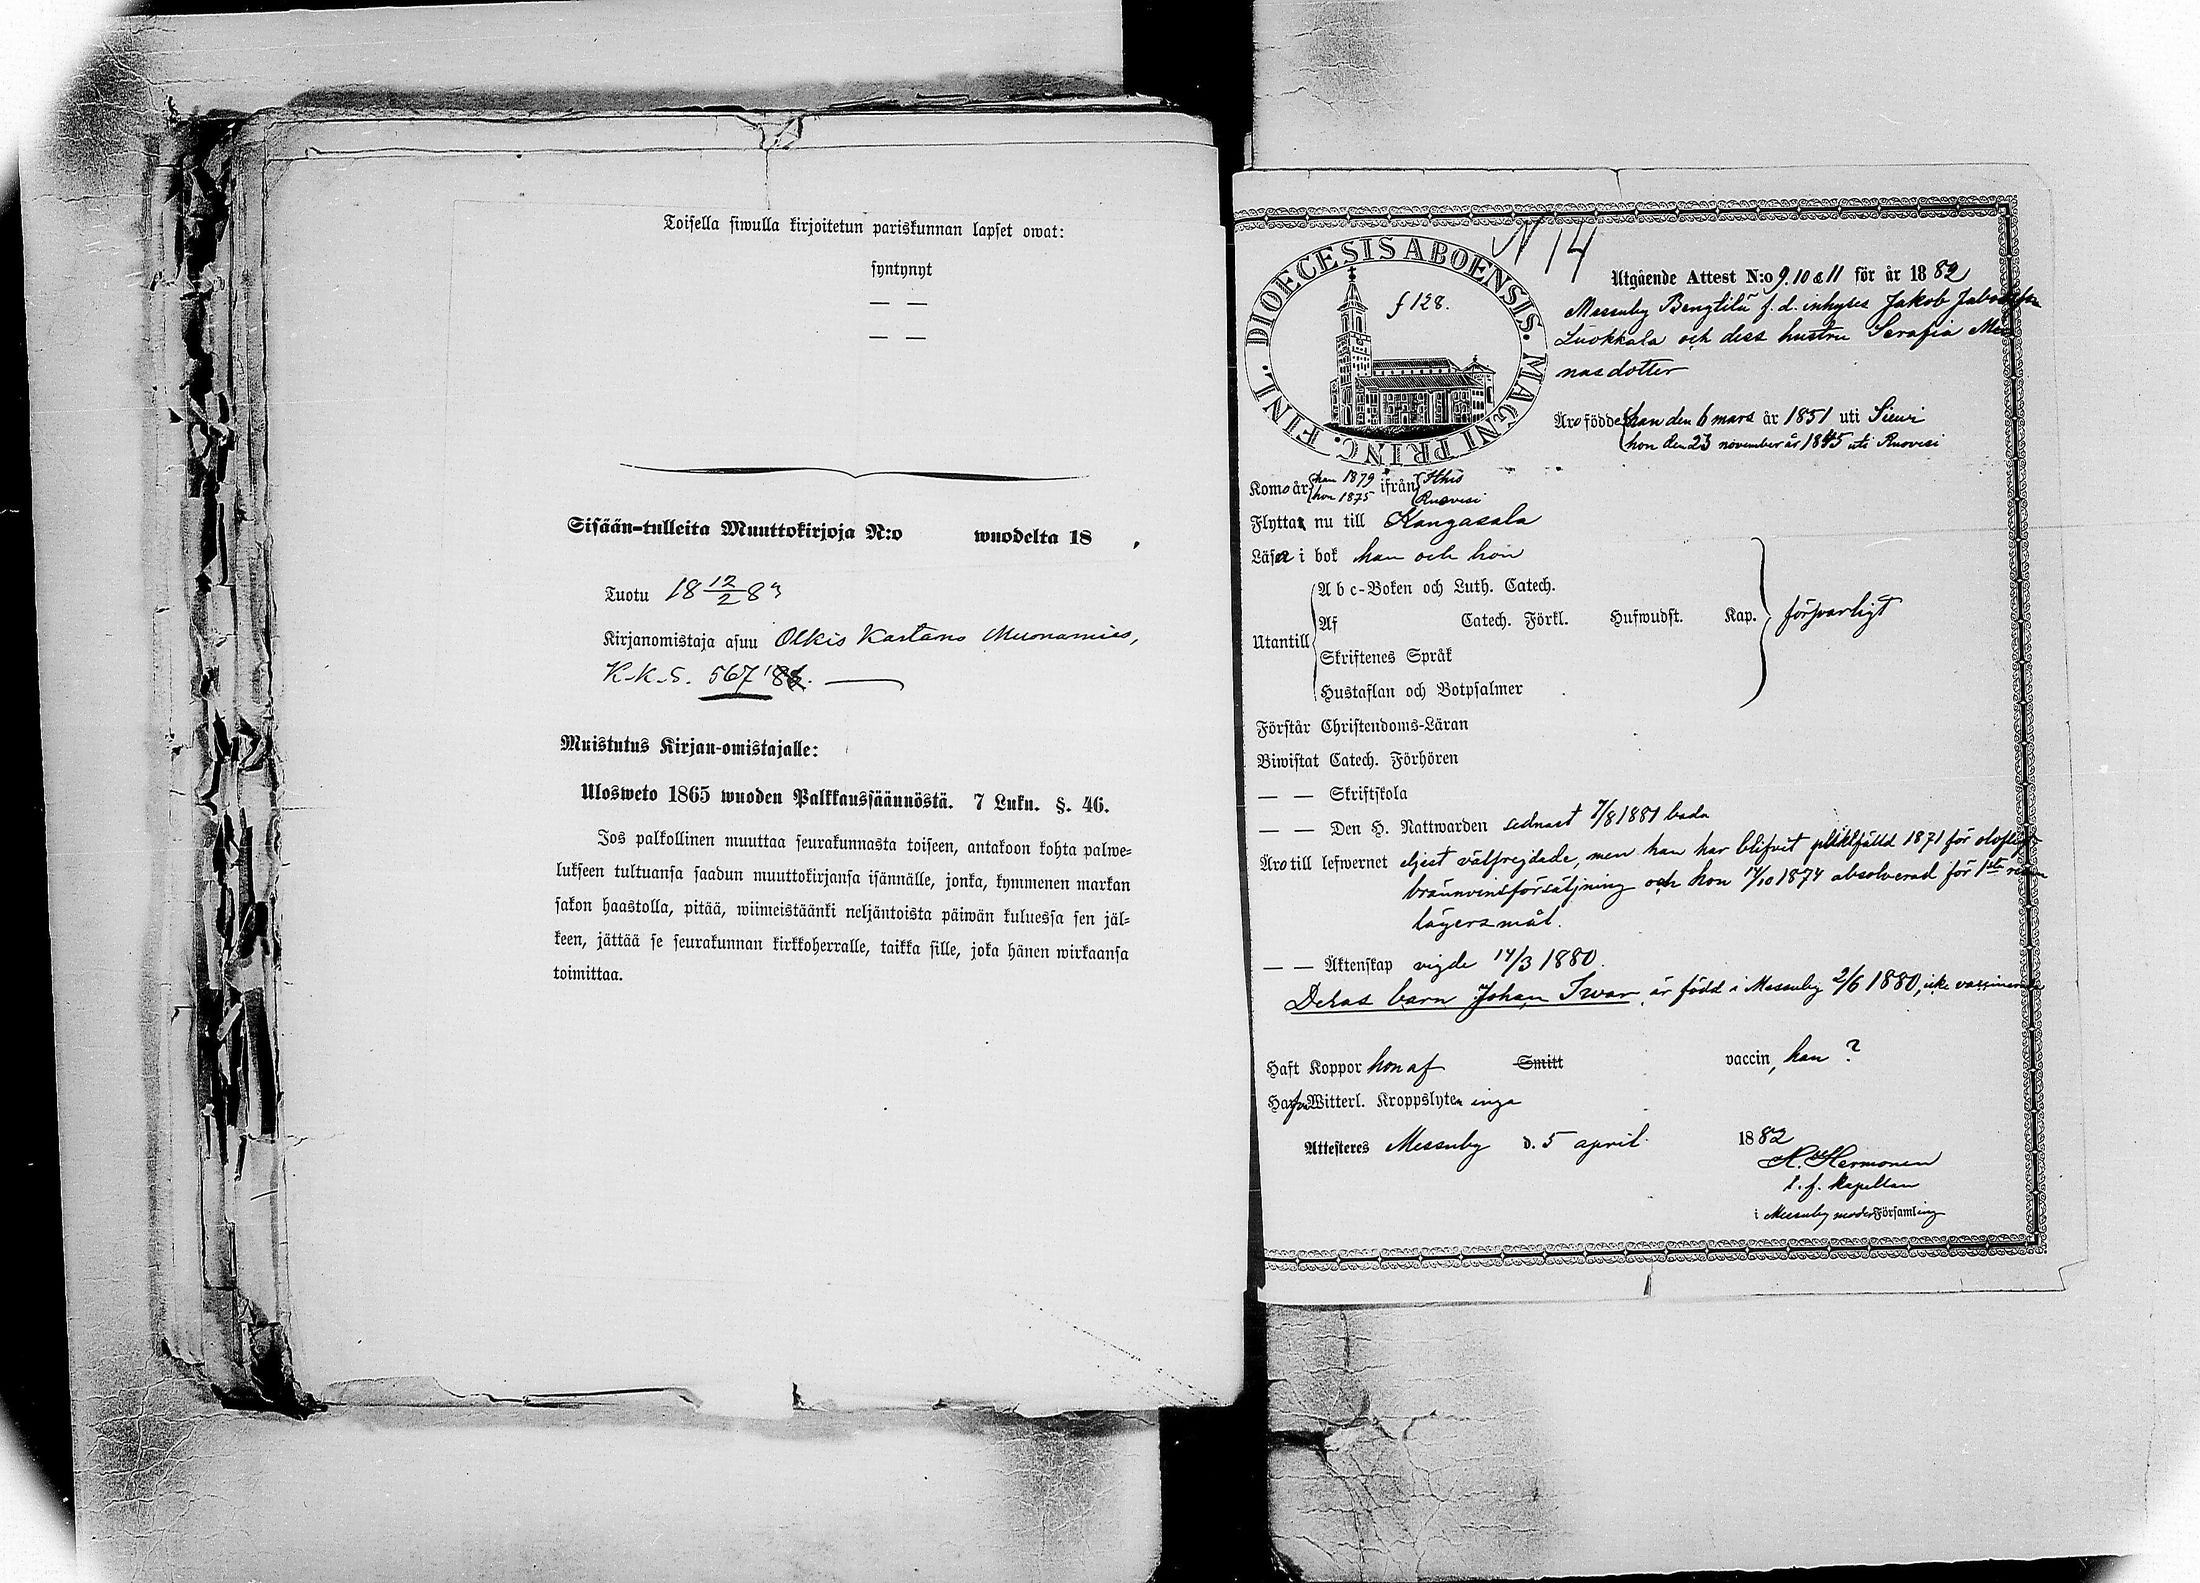 Toisella siwulla kirjoitetun pariskunnan lapset owat:
syntynyt
— —
— —
Sisään-tulleita Muuttokirjoja N:o wuodelta 18 .
Tuotu 18 12/2 83
Kirjanomistaja asuu Olkis Kartano Muonamies,
K.K.S. 567 .
Muistutus Kirjan-omistajalle:
Ulosweto 1865 wuoden Palkkaussäännöstä. 7 Luku. §. 46.
Jos palkollinen muuttaa seurakunnasta toiseen, antakoon kohta palwe=
lukseen tultuansa saadun muuttokirjansa isännälle, jonka, kymmenen markan
sakon haastolla, pitää, wiimeistäänki neljäntoista päiwän kuluessa sen jäl=
keen, jättää se seurakunnan kirkkoherralle, taikka sille, joka hänen wirkaansa
toimittaa.
N 14
DIOECESIS ABOENSIS. MAGNI PRINC. FINL.
f 128.
Utgående Attest N:o 9. 10 & 11 för år 1882
Messuby Bengtilä f.d. inhyses Jakob
Luokkala och dess hustru Serafia
nasdotter
Äro födde han den 6 mars år 1851 uti Siewi
hon den 23 november år 1845 uti Ruovesi
Komo år han 1879 ifrån Ithis
hon 1875 Ruovesi
Flytta nu till Kangasala
Läsa i bok han och hon
Utantill
A b c-Boken och Luth. Catech.
Af Catech. Förkl. Hufwudst. Kap. försvarligt
Skriftenes Språk
Hustaflan och Botpsalmer
Förstår Christendoms-Läran
Biwistat Catech. Förhören
— — Skriftskola
— — Den H. Nattwarden sednast 7/8 1881 båda
Äro till lefwernet eljest välfrejdade, men han har blifvit pliktfälld 1871 för
bränvinsförsäljning och hon 14/10 1874 absolverad för 1sta resan
lägersmål.
— — Äktenskap vigde 14/3 1880.
Deras barn Johan Iwar är född i Messuby 2/6 1880, icke vaccinerad
Haft Koppor hon af Smitt vaccin, han ?
Hafva Witterl. Kroppslyten inga
Attesteres Messuby d. 5 april 1882
K. Hermonen
t. f. kapellan
i Messuby moder Församling